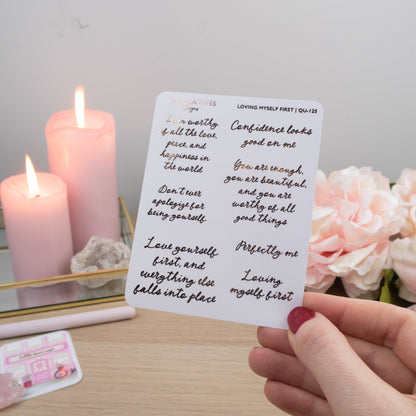 LOVING MYSELF FIRST | QU-125
I am worthy
of all the love,
peace, and
happiness in
the world
Don't ever
apologize for
being yourself.
Love yourself
first, and
everything else
falls into place
Confidence looks
good on me
You are enough,
you are beautiful,
and you are
worthy of all
good things
Perfectly me
Loving
myself first